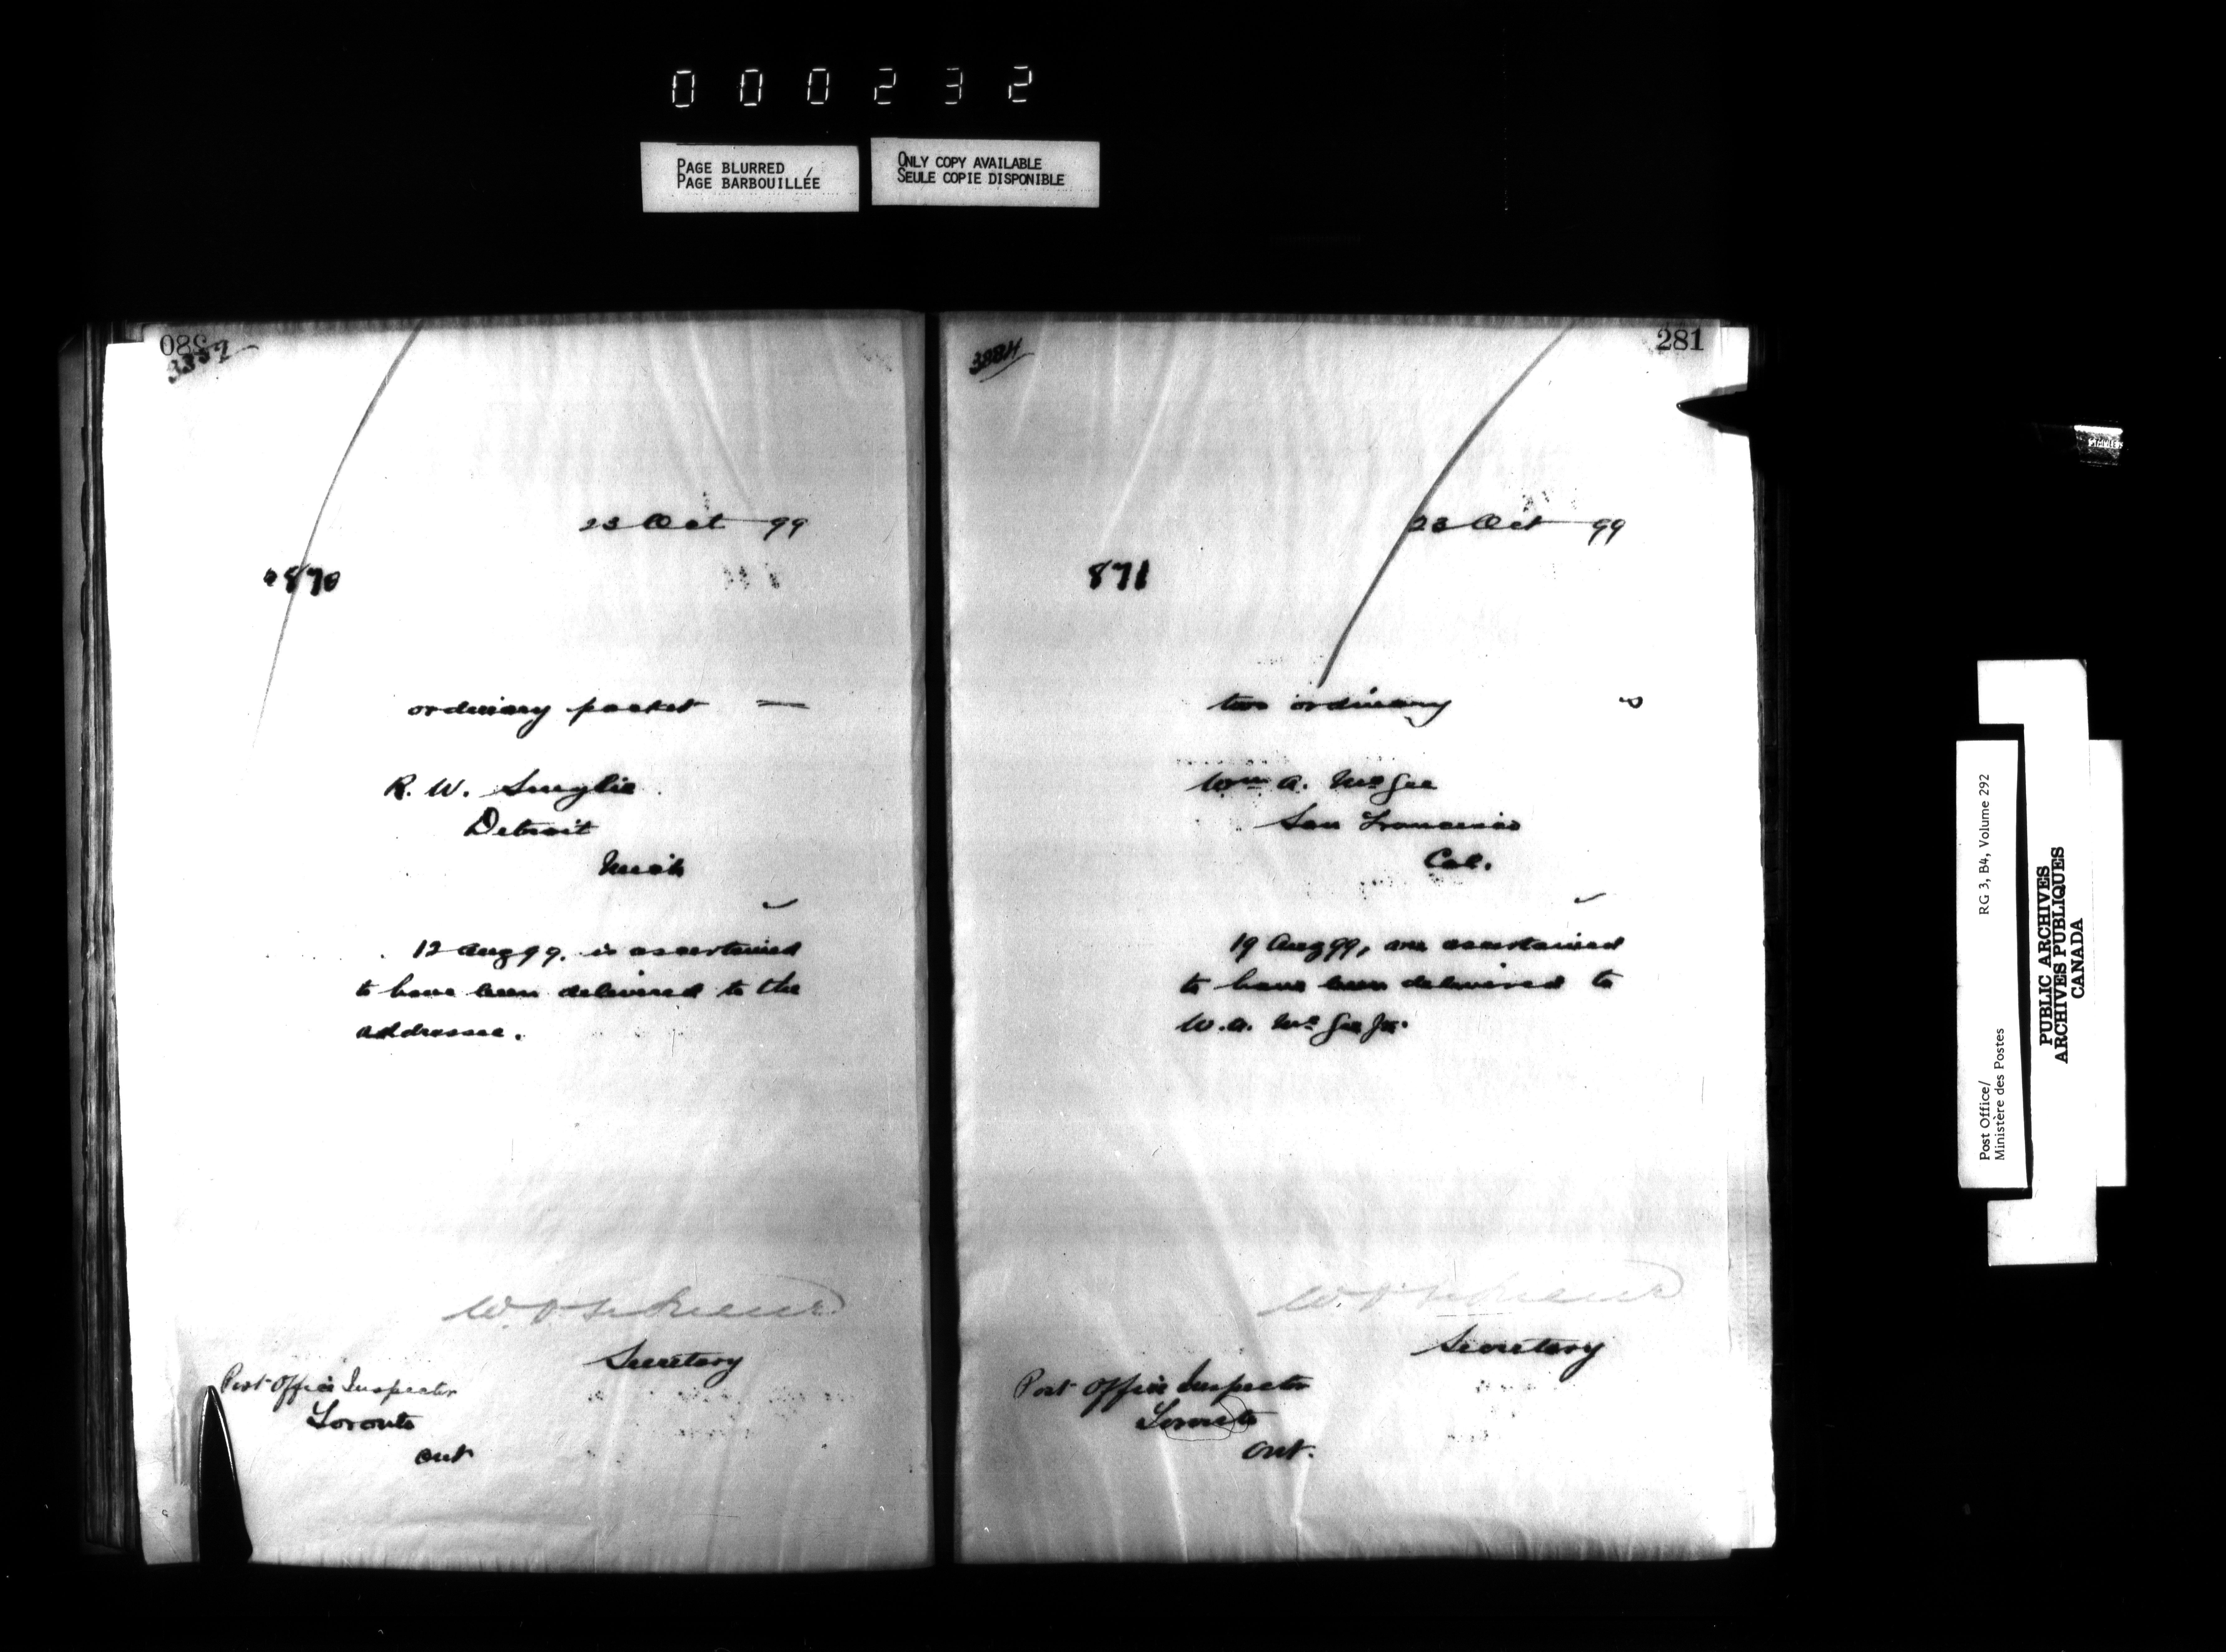 000232
PAGE BLURRED
PAGE BARBOUILLÉE
ONLY COPY AVAILABLE
SEULE COPIE DISPONIBLE
280
23 Oct 99
870
ordinary packet
R. W. Smylie
Detroit
Mich
12 Aug 99. is ascertained
to have been delivered to the
addressee.
Secretary
Post Office Inspector
Toronto
Ont
3884
281
23 Oct 99
871
two ordinary s
Wm A. McGee
San Francisco
Cal.
19 Aug 99, are ascertained
to have been delivered to
W. A. McGee Jr.
Secretary
Post Office Inspector
Toronto
Ont.
Post Office/
Ministère des Postes
RG 3, B4, Volume 292
PUBLIC ARCHIVES
ARCHIVES PUBLIQUES
CANADA